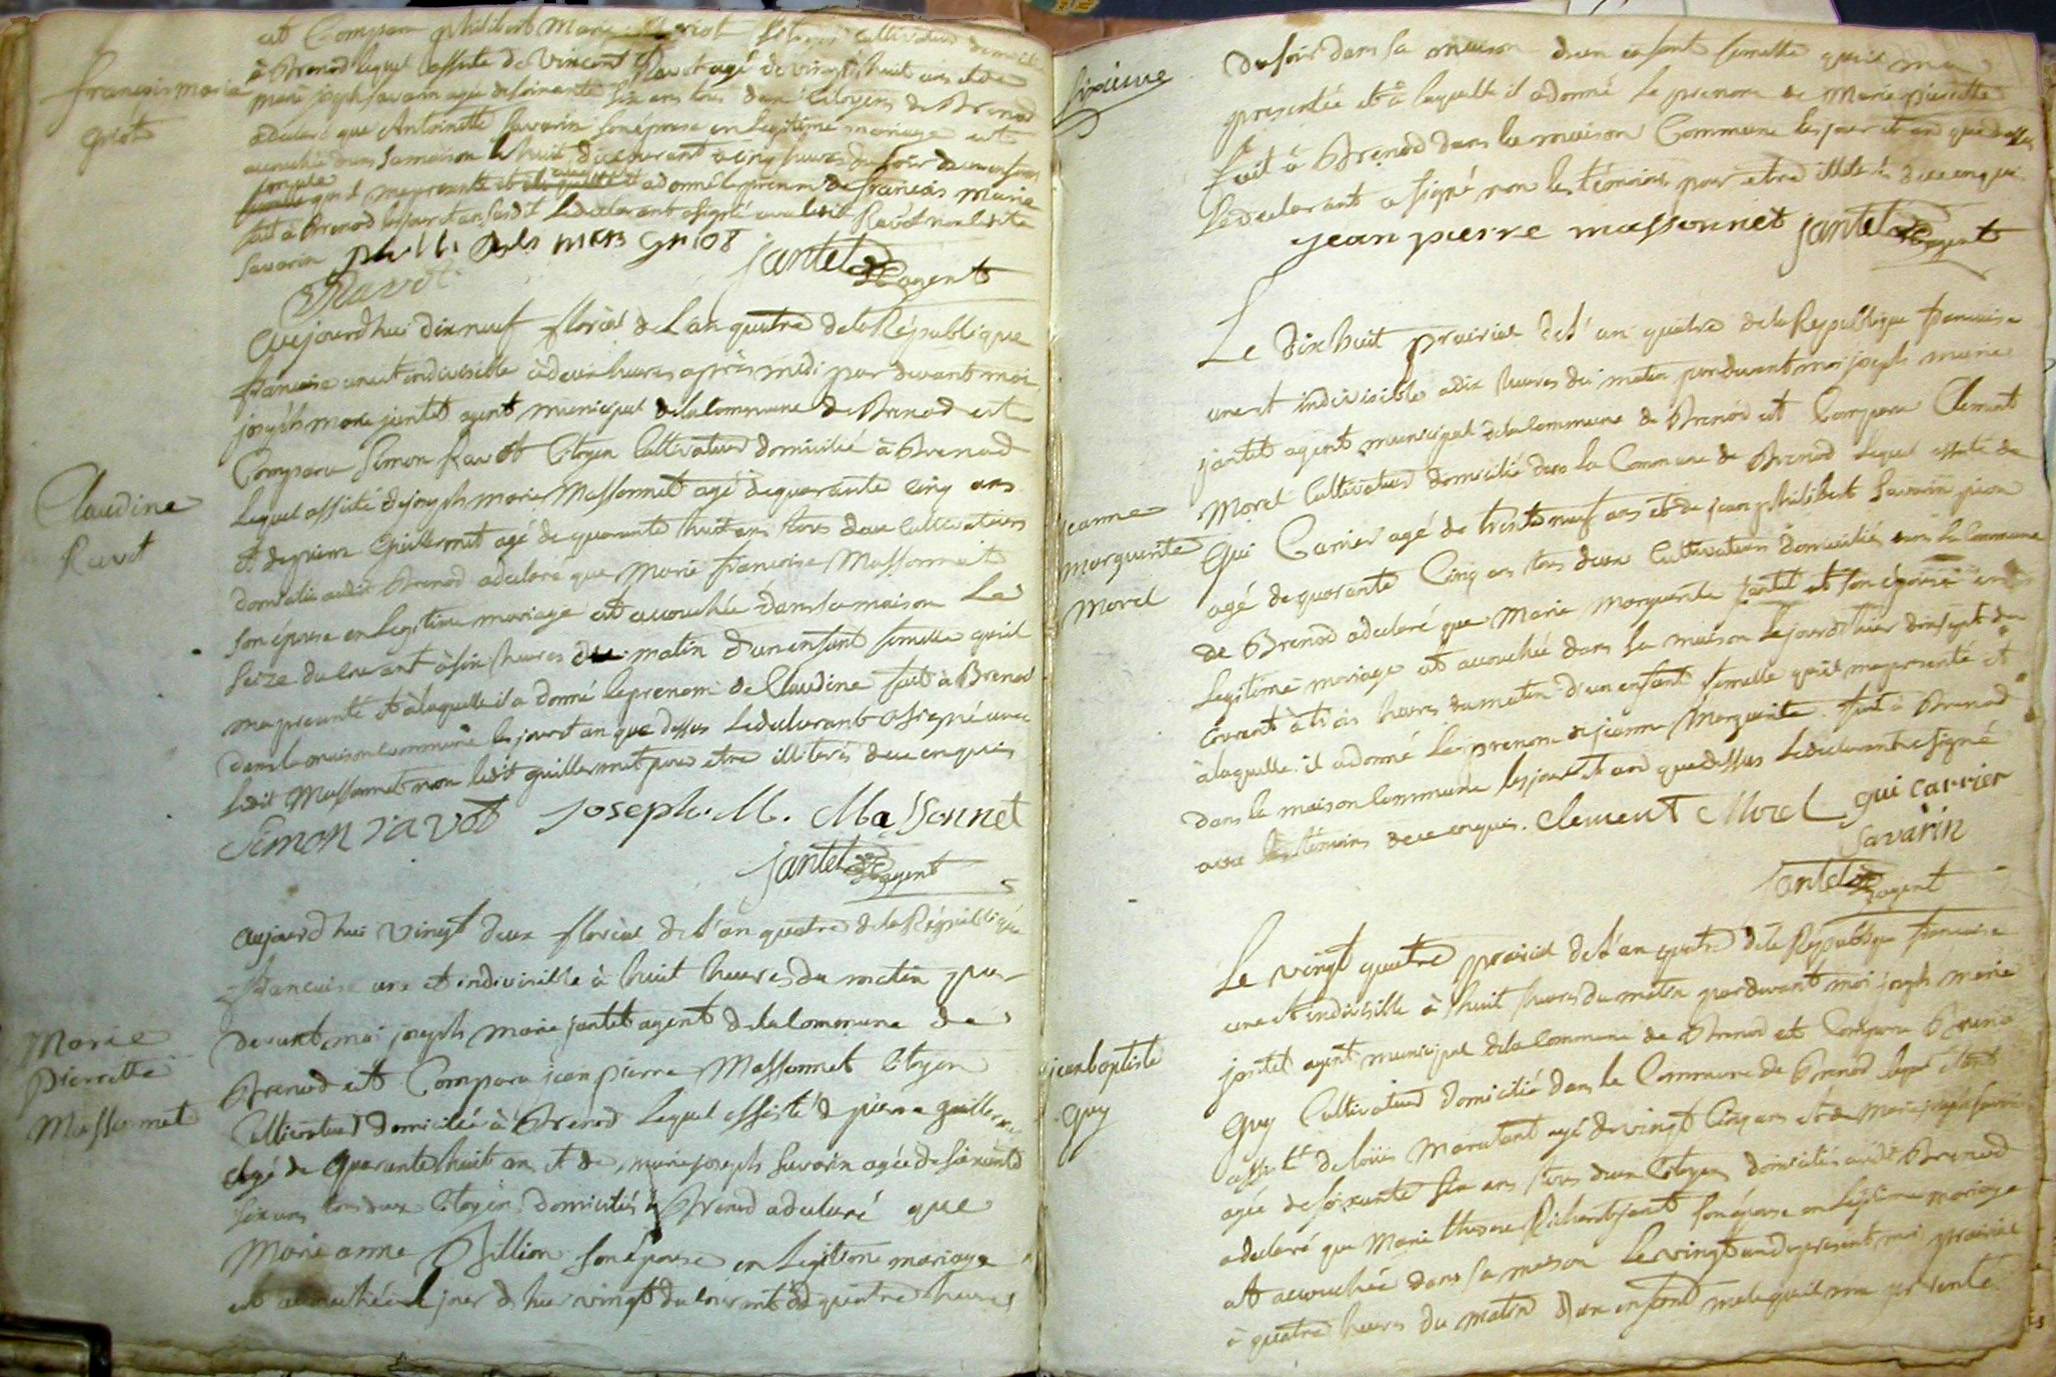 francois marie
griot
est Comparu philibert Marie griot Citoyen cultivateur
à Brenod lequel assisté de Vincent Ravot agé de vingt huit ans et de
marie joseph savarin agé de soixante six ans tous deux Citoyens de Brenod
a declaré que Antoinette Savarin son épouse en legitime mariage est
accouchée dans sa maison le huit du courant a cinq heures du soir d'un enfant
femelle qu'il m'a presenté et a donné le prenom de francois Marie
fait a Brenod les jour et an susdit le declarant a signé avec ledit Ravot non ledit
Savarin
griot
jantet agent
Ravot
Claudine
Ravot
aujourdhui dixneuf floréal de L'an quatre de la République
francaise une et indivisible à deux heures après midi par devant moi
joseph marie jantet agent municipal de la Commune de Brenod est
Comparu Simon Ravot Citoyen Cultivateur domicilié à Brenod
lequel assisté de joseph marie Massonnet agé de quarante cinq ans
et de pierre Guillermet agé de quarante huit ans tous deux Cultivateurs
domiciliés audit Brenod a declaré que Marie francoise Massonnet
son épouse en Legitime mariage est accouchée dans sa maison Le
seize du courant à six heures du matin d'un enfant femelle quil
ma presenté et à laquelle il a donné le prenom de Claudine fait à Brenod
dans la maison commune les jour et an que dessus Le declarant a signé avec
ledit Massonnet non ledit guillermet pour etre illiteré de ce enquis
Simon ravot Joseph. M. Massonnet
jantet agent
Marie
pierrette
Massonnet
aujourdhui vingt deux floréal de l'an quatre de la République
francaise une et indivisible à huit heures du matin par
devant moi joseph marie jantet agent de la Commune de
Brenod est Comparu jean pierre Massonnet Citoyen
Cultivateur domicilié à Brenod lequel assisté de pierre guillermet
agé de quarante huit ans et de marie joseph Savarin agée de soixante
six ans tous deux Citoyens domiciliés à Brenod a declaré que
Marie anne Billion son épouse en Legitime mariage
est accouchée le jour d'hier vingt du courant à quatre heures
Sixieme
du soir dans sa maison d'un enfant femelle qu'il m'a
presentée et à laquelle il a donné le prenom de Marie pierrette
fait à Brenod dans la maison Commune les jour et an que dessus
le declarant a signé non les témoins pour etre illiterés de ce enquis
jean pierre massonnet jantet agent
Jeanne
marguerite
Morel
Le dix huit prairial de l'an quatre de la Republique francaise
une et indivisible a dix heures du matin pardevant moi joseph marie
jantet agent municipal de la Commune de Brenod est Comparu Clement
Morel Cultivateur domicilié dans la Commune de Brenod lequel assisté de
Gui Carrier agé de trente neuf ans et de jean philibert Savarin
agé de quarante Cinq ans tous deux Cultivateurs domiciliés dans la Commune
de Brenod a declaré que Marie Marguerite jantet son épouse en
legitime mariage est accouchée dans sa maison le jour d'hier dixsept du
courant à trois heures du matin d'un enfant femelle qu'il m'a presenté et
à laquelle il a donné le prenom de jeanne Marguerite fait à Brenod
dans la maison Commune les jour et an que dessus le declarant a signé
avec les témoins de ce enquis. Clement Morel gui carrier
savarin
jantet agent
jean baptiste
Guy
Le vingt quatre prairial de l'an quatre de la Republique francaise
une et indivisible à huit heures du matin pardevant moi joseph marie
jantet agent municipal de la Commune de Brenod est Comparu
Guy Cultivateur domicilié dans la Commune de Brenod lequel étant
assisté de louis agé de vingt Cinq ans et de Marie joseph savarin
agée de soixante six ans tous deux Citoyens domiciliés audit Brenod
a declaré que Marie therese son épouse en Legitime mariage
est accouchée dans sa maison le vingt un du present moi prairial
à quatre heures du matin d'un enfant male qu'il m'a presenté